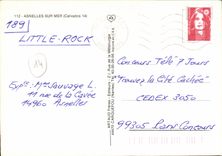 112 - ASNELLES SUR MER (Calvados) 14
189)
LITTLE-ROCK
14
Expr: Mme Sauvage L.
11 rue de la Cavée
14960 Asnelles
Concours Télé 7 Jours
"Trouvez la Cité Cachée"
CEDEX 3050
99305 Paris Concours